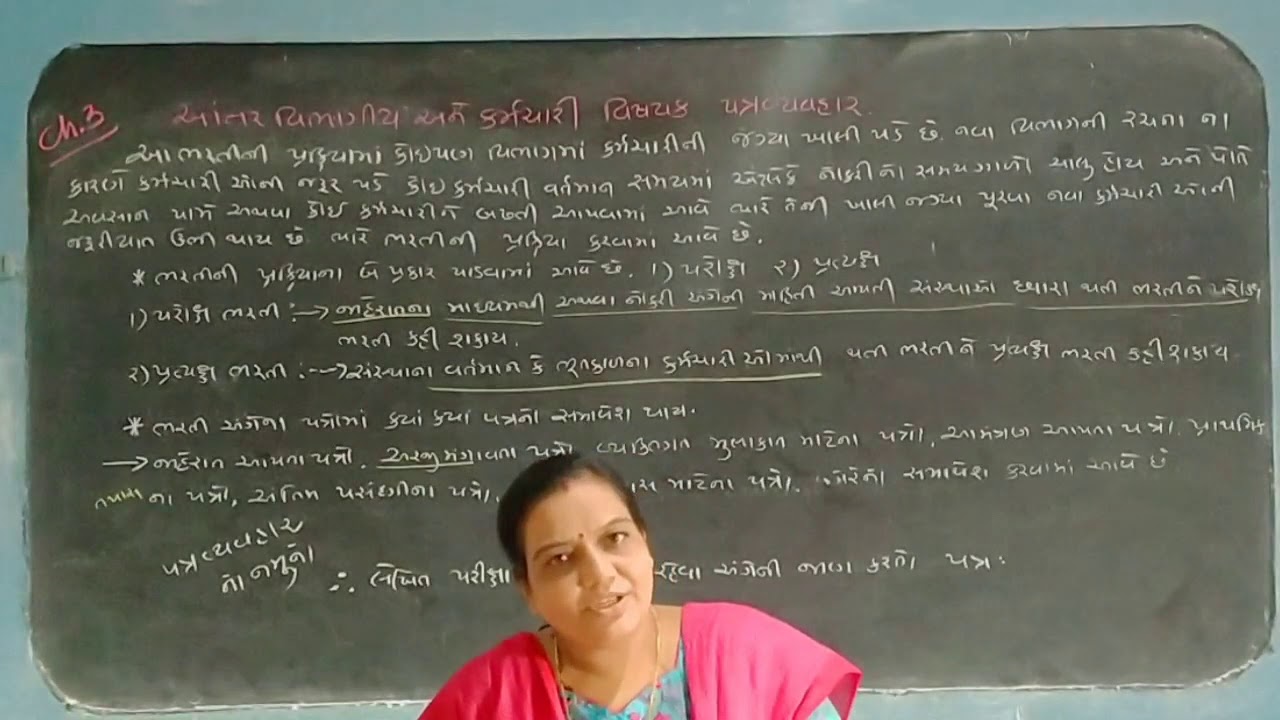 Ch.3
આંતર વિભાગીય અને કર્મચારી વિષયક પત્રવ્યવહાર.
આ ભરતીની પ્રક્રિયામાં કોઇપણ વિભાગમાં કર્મચારીની જગ્યા ખાલી પડે છે. નવા વિભાગની રચના ના
કારણે કર્મચારી ઓની જરૂર પડે કોઇ કર્મચારી વર્તમાન સમયમાં એટલેકે નોકરીનો સમયગાળો ચાલુ હોય અને પોતે
અવસાન પામે અથવા કોઈ કર્મચારીને બઢતી આપવામાં આવે ત્યારે તેની ખાલી જગ્યા પૂરવા નવા કર્મચારી ઓની
જરૂરીયાત ઉભી થાય છે. ત્યારે ભરતીની પ્રક્રિયા કરવામાં આવે છે.
* ભરતીની પ્રક્રિયાના બે પ્રકાર પાડવામાં આવે છે. ૧) પરોક્ષ ૨) પ્રત્યક્ષ
૧) પરોક્ષ ભરતી :→ જાહેરાતના માધ્યમથી અથવા નોકરી અંગેની માહિતી આપતી સંસ્થાઓ દ્વારા થતી ભરતીને પરોક્ષ
ભરતી કહી શકાય.
૨) પ્રત્યક્ષ ભરતી :→ સંસ્થાના વર્તમાન કે ભૂતકાળના કર્મચારી ઓમાંથી થતી ભરતીને પ્રત્યક્ષ ભરતી કહી શકાય
* ભરતી અંગેના પત્રોમાં કયાં કયાં પત્રનો સમાવેશ થાય.
→ જાહેરાત આપતા પત્રો. અરજી મંગાવતા પત્રો વ્યકિતગત મુલાકાત માટેના પત્રો, આમંત્રણ આપતા પત્રો. પ્રાથમિક
તપાસ ના પત્રો, અંતિમ પસંદગીના પત્રો, માટેના પત્રો. વગેરેનો સમાવેશ કરવામાં આવે છે
પત્રવ્યવહાર
નો નમુનો
∴ લેખિત પરીક્ષા રહેવા અંગેની જાણ કરતો પત્ર :